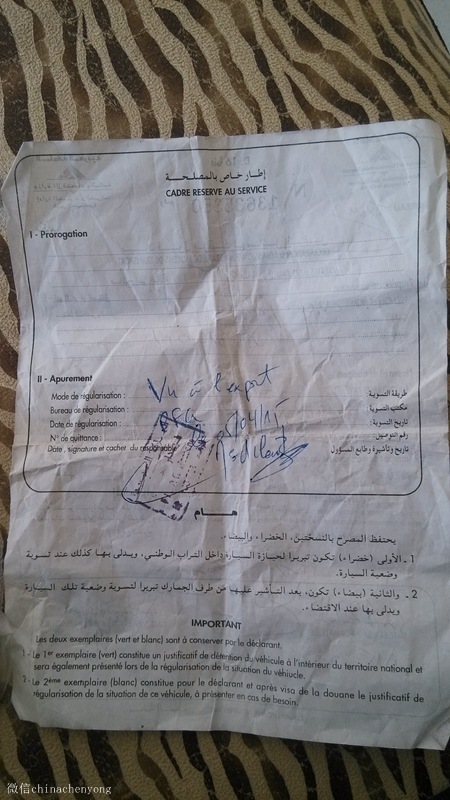 إطار خاص بالمصلحة
CADRE RESERVE AU SERVICE
I - Prorogation
II - Apurement
Vu à l'export
Mode de régularisation :
طريقة التسوية:
Bureau de régularisation :
مكتب التسوية:
Date de régularisation :
تاريخ التسوية:
N° de quittance :
رقم التوصيل:
Date , signature et cachet du responsable
تاريخ وتأشيرة وطابع المسؤول
هـــام
يحتفظ المصرح بالنسختين، الخضراء والبيضاء.
1 ـ الأولى (خضراء) تكون تبريرا لحيازة السيارة داخل التراب الوطني، ويدلى بها كذلك عند تسوية
وضعية السيارة.
2 ـ والثانية (بيضاء) تكون، بعد التأشير عليها من طرف الجمارك تبريرا لتسوية وضعية تلك السيارة
ويدلى بها عند الاقتضاء.
IMPORTANT
Les deux exemplaires (vert et blanc) sont à conserver par le déclarant.
1 - Le 1er exemplaire (vert) constitue un justificatif de détention du véhicule à l'intérieur du territoire national et
sera également présenté lors de la régularisation de la situation du véhicule.
2 - Le 2ème exemplaire (blanc) constitue pour le déclarant et après visa de la douane le justificatif de
régularisation de la situation de ce véhicule, à présenter en cas de besoin.
微信chinachenyong